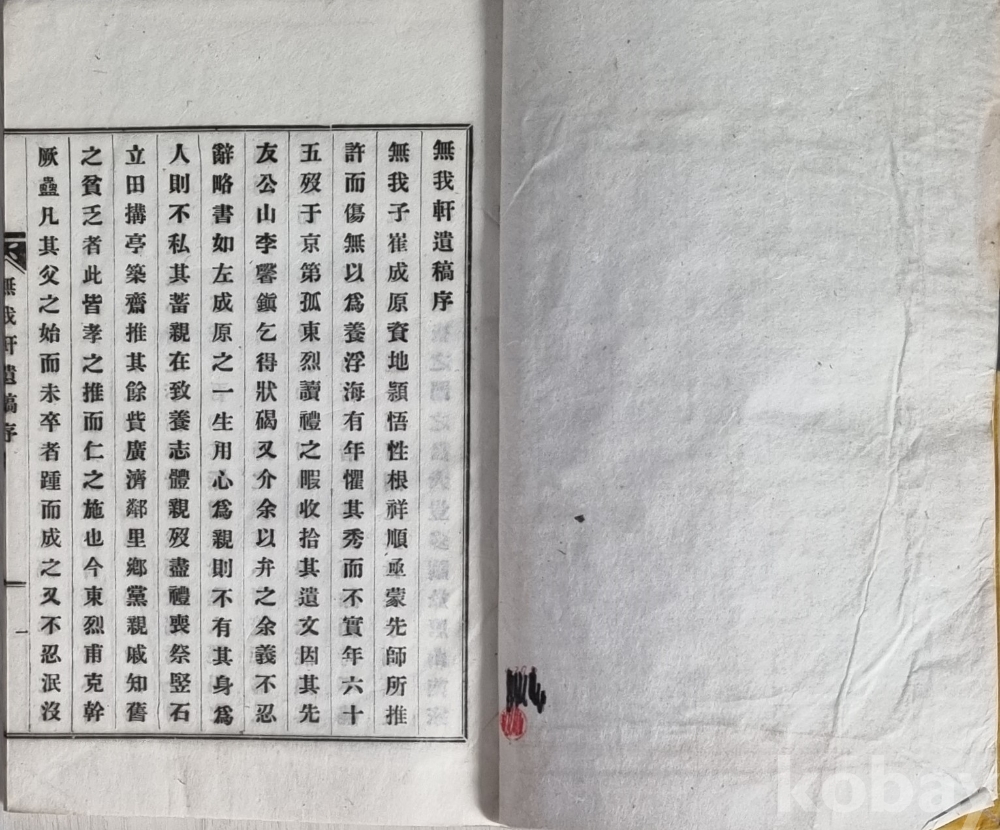 無我軒遺稿序
無我子崔成原資地頴悟性根祥順亟蒙先師所推
許而傷無以爲養浮海有年懼其秀而不實年六十
五歿于京第孤東烈讀禮之暇收拾其遺文因其先
友公山李馨鎭乞得狀碣又介余以弁之余義不忍
辭略書如左成原之一生用心爲親則不有其身爲
人則不私其蓄親在致養志體親歿盡禮喪祭竪石
立田搆亭築齋推其餘貲廣濟鄰里鄉黨親戚知舊
之貧乏者此皆孝之推而仁之施也今東烈甫克幹
厥蠱凡其父之始而未卒者踵而成之又不忍泯沒
無我軒遺稿序
一
kobay